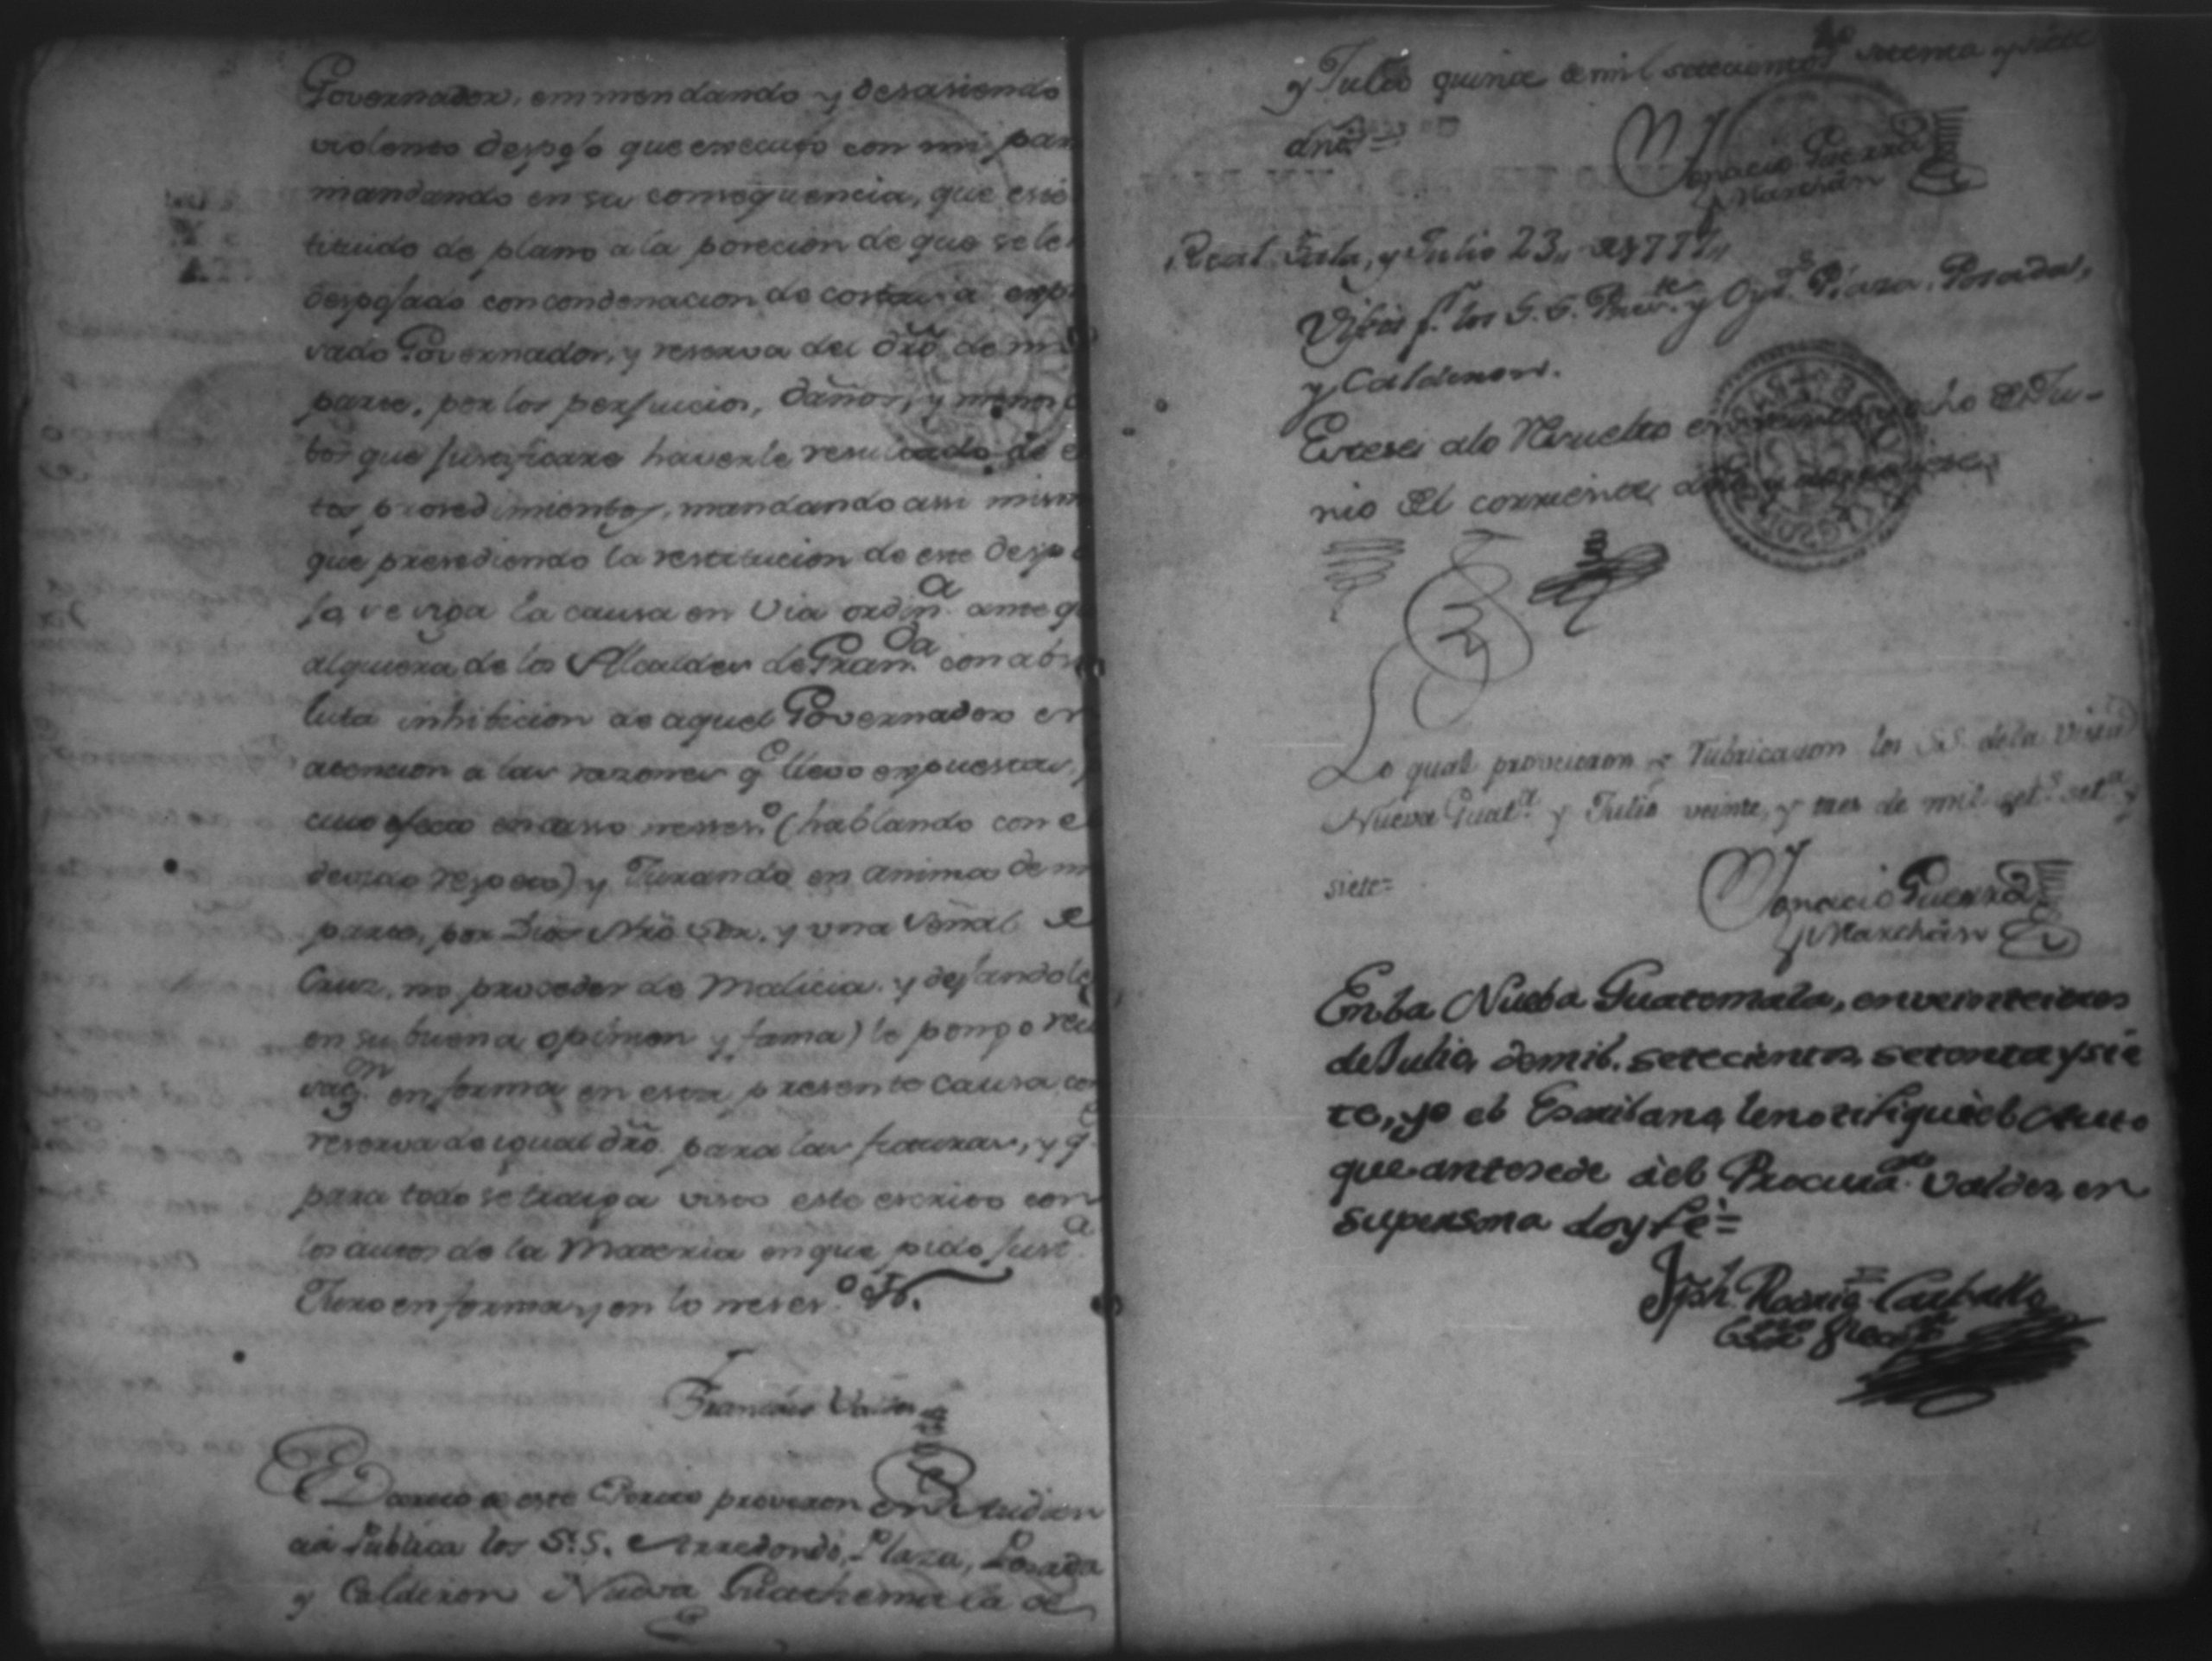 Governador, emmendando y desasiendo
violento despojo que executó con mi par
mandando en su consequencia, que esté
tituido de plano a la posecion de que se le
despojado con condenacion de costas a exp
vado Governador, y reserva del dro. de mi
parte, por los perjuicios, daños, y menos c
bos que justificare haverle resultado de e
tos prosedimientos, mandando assi mism
que presediendo la restitucion de este despo
jo, se siga la causa en via ordin.a ante qu
alquiera de los Alcaldes de Gran.da con abso
luta inhibicion de aquel Governador en
atencion a las razones q.e llevo expuestas,
cuio efecto en caso neseso.o (hablando con e
devido respecto) y Jurando en anima de mi
parte, por Dios Nro. Sor. y una Señal de
Cruz, no proceder de malicia, y dejandole
en su buena opinion y fama) le pongo recu
vaz.n en forma en esta presente causa, con
reserva de igual dro. para las futuras, y q.e
para todo se traiga visto este escrito con
los autos de la Materia en que pido just.a
Juro en forma, y en lo neses.o &a.
Francisco Valdes
El Decreto de este Escrito proveieron en Audien
cia Publica los S.S. Arredondo, Plaza, Posada
y Calderon Nueva Guathemala de
y Julio quince de mil setecientos setenta y siete
años=
Ygnacio Guerra
y Marchàn
Real Sala, y Julio 23,, de 1777,,
Vistos p.r los S.S. Presid.te y Oyd.s Plaza, Posada,
y Calderon.
Estese a lo Resuelto en ocho de Ju-
nio del corriente
Lo qual proveieron y Rubricaron los SS. de la
Nueva Guat.a y Julio veinte, y tres de mil set.s set.a y
siete=
Ygnacio Guerra
y Marchàn
En la Nueba Guatemala, en veinteitres
de Julio, de mil. setecientos, setenta y sie
te, yo el Escribano, le notifiqué el Auto
que antesede àel Procura.dor Valdes, en
su persona doy fé=
Jph. Rodrig.z Carballo
Esno. Recep.r